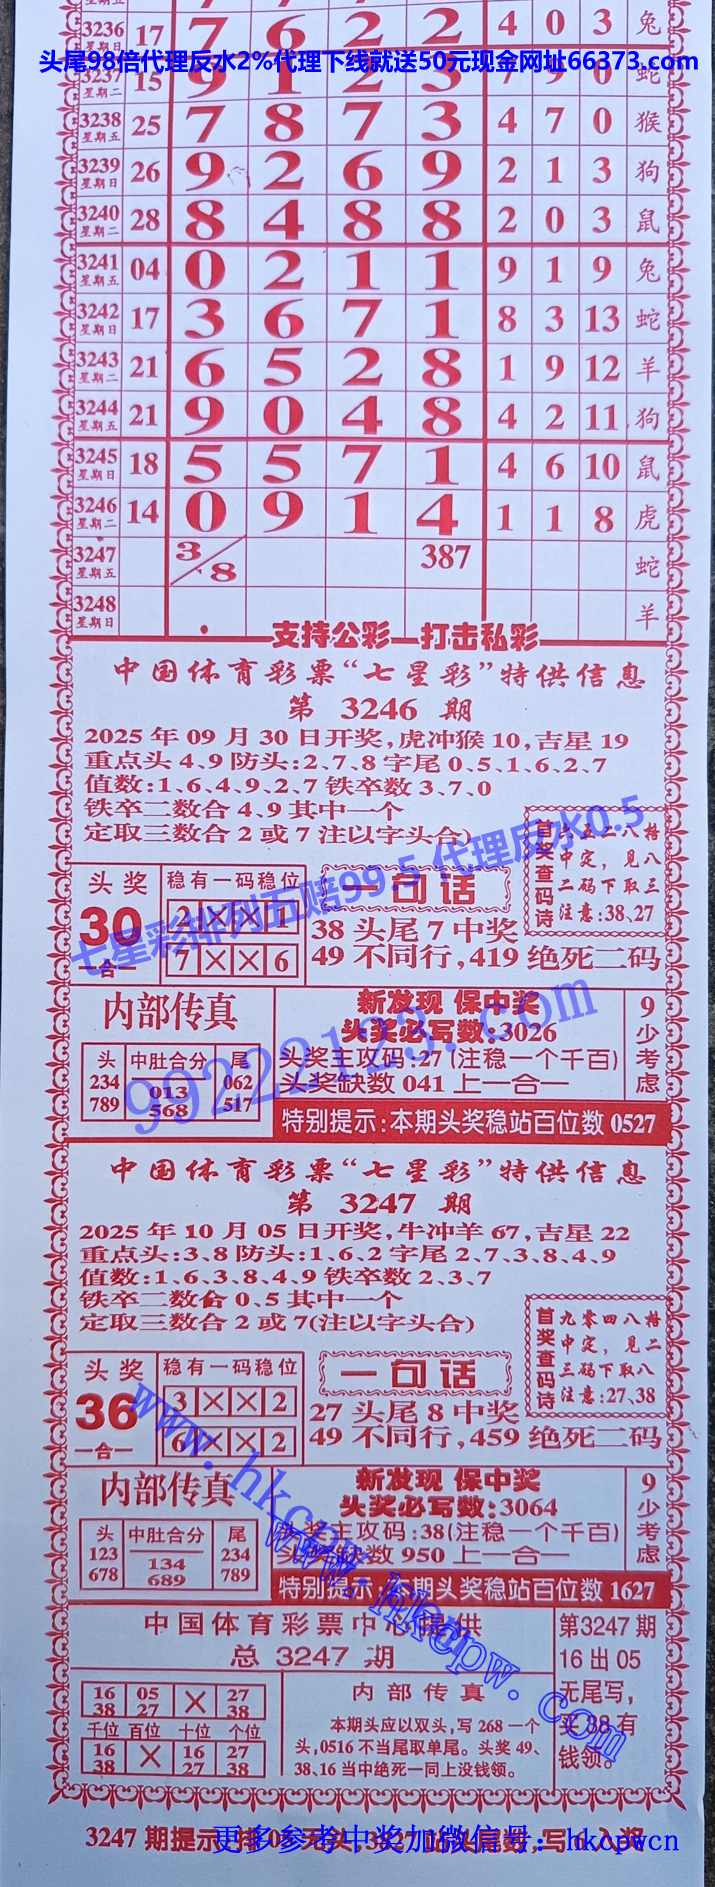 3236 星期日 17 7 6 2 2 4 0 3 兔
头尾98倍代理反水2%代理下线就送50元现金网址66373.com
3237 星期二 15 9 1 2 3 7 9 0 蛇
3238 星期五 25 7 8 7 3 4 7 0 猴
3239 星期日 26 9 2 6 9 2 1 3 狗
3240 星期二 28 8 4 8 8 2 0 3 鼠
3241 星期五 04 0 2 1 1 9 1 9 兔
3242 星期日 17 3 6 7 1 8 3 13 蛇
3243 星期二 21 6 5 2 8 1 9 12 羊
3244 星期五 21 9 0 4 8 4 2 11 狗
3245 星期日 18 5 5 7 1 4 6 10 鼠
3246 星期二 14 0 9 1 4 1 1 8 虎
3247 星期五 3/8 387 蛇
3248 星期日 羊
支持公彩—打击私彩
中国体育彩票“七星彩”特供信息
第 3246 期
2025 年 09 月 30 日开奖,虎冲猴 10,吉星 19
重点头 4、9 防头:2、7、8 字尾 0、5、1、6、2、7
值数:1、6、4、9、2、7 铁卒数 3、7、0
铁卒二数合 4、9 其中一个
定取三数合 2 或 7 注以字头合)
首奖查码诗
六五二八格
中定，见八
二码下取三
注意:38、27
七星彩排列五赔99.5 代理反水0.5
头奖
30
一合一
稳有一码稳位
2 × × 1
7 × × 6
一句话
38 头尾 7 中奖
49 不同行,419 绝死二码
内部传真
头 中肚合分 尾
234 013 062
789 568 517
新发现 保中奖
头奖必写数:3026
头奖主攻码:27(注稳一个千百)
头奖缺数 041 上一合一
9少考虑
特别提示:本期头奖稳站百位数 0527
99222123.com
中国体育彩票“七星彩”特供信息
第 3247 期
2025 年 10 月 05 日开奖,牛冲羊 67,吉星 22
重点头:3、8 防头:1、6、2 字尾 2、7、3、8、4、9
值数:1、6、3、8、4、9 铁卒数 2、3、7
铁卒二数合 0、5 其中一个
定取三数合 2 或 7(注以字头合)
首奖查码诗
九零四八格
中定，见二
三码下取八
注意:27、38
头奖
36
一合一
稳有一码稳位
3 × × 2
6 × × 2
一句话
27 头尾 8 中奖
49 不同行,459 绝死二码
内部传真
头 中肚合分 尾
123 134 234
678 689 789
新发现 保中奖
头奖必写数:3064
头奖主攻码:38(注稳一个千百)
头奖缺数 950 上一合一
9少考虑
特别提示:本期头奖稳站百位数 1627
www.hkcpw.com
www.hkcpw.com
中国体育彩票中心提供
总 3247 期
16 38 05 27 × 27 38
千位 百位 十位 个位
16 38 × 16 27 27 38
内部传真
本期头应以双头,写 268 一个
头,0516 不当尾取单尾。头奖 49、
38、16 当中绝死一同上没钱领。
第3247 期
16 出 05
无尾写,
买 38 有
钱领。
3247 期提示
更多参考中奖加微信号：hkcpwcn